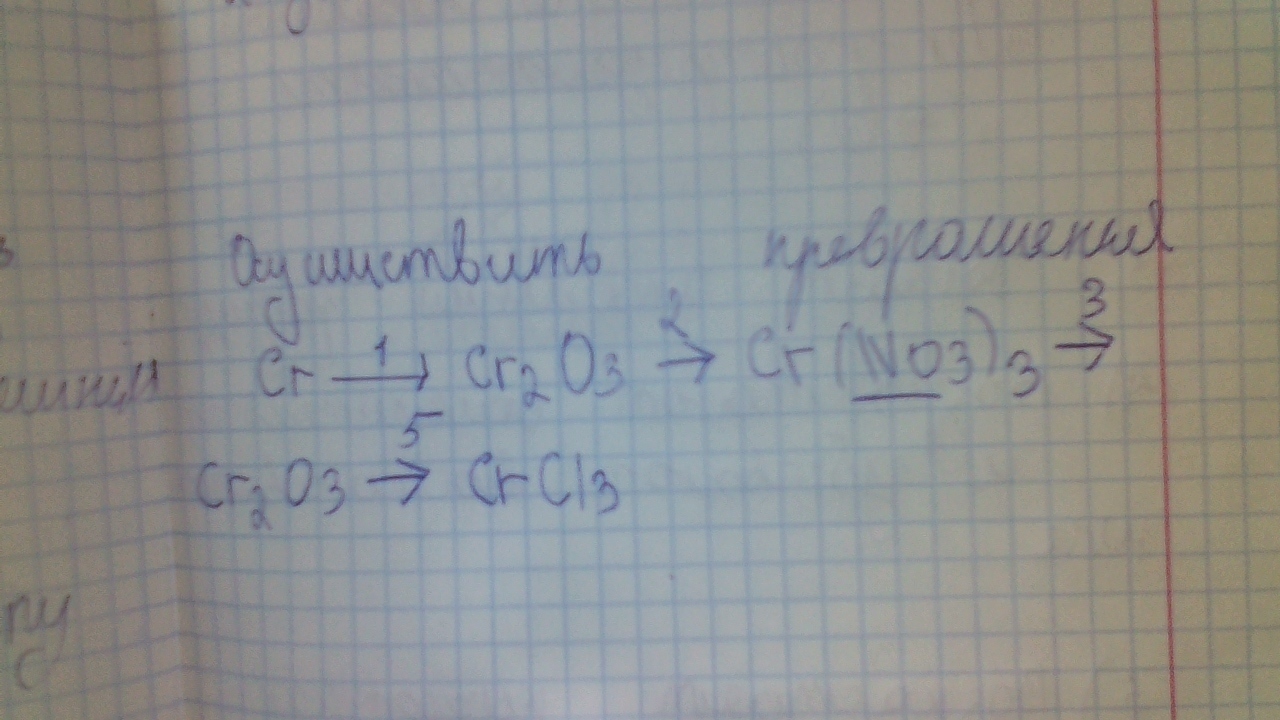 Осуществить превращения
Cr →1 Cr2O3 →2 Cr(NO3)3 →3
Cr2O3 →5 CrCl3